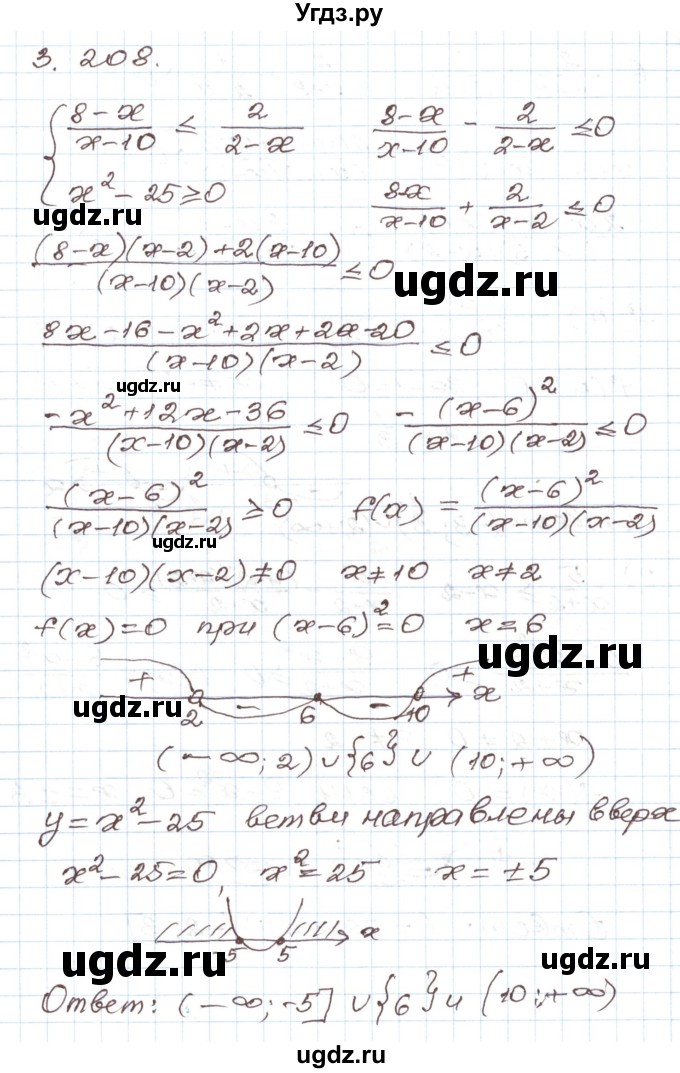 Угдз.ру
3. 208.
{ (8-x)/(x-10) ≤ 2/(2-x)    (8-x)/(x-10) - 2/(2-x) ≤ 0
x² - 25 ≥ 0    (8-x)/(x-10) + 2/(x-2) ≤ 0
ugdz.ru
((8-x)(x-2)+2(x-10))/((x-10)(x-2)) ≤ 0
ugdz.ru
(8x-16-x²+2x+2x-20)/((x-10)(x-2)) ≤ 0
ugdz.ru
(-x²+12x-36)/((x-10)(x-2)) ≤ 0    -(x-6)²/((x-10)(x-2)) ≤ 0
(x-6)²/((x-10)(x-2)) ≥ 0    f(x) = (x-6)²/((x-10)(x-2))
ugdz.ru
(x-10)(x-2)≠0    x≠10    x≠2
f(x)=0 при (x-6)²=0    x=6
ugdz.ru
+ - - + x
2 6 10
(-∞; 2) ∪ {6} ∪ (10; +∞)
y = x² - 25 ветви направлены вверх
x² - 25 = 0, x² = 25    x = ±5
ugdz.ru
x
-5 5
ugdz.ru
Ответ: (-∞; -5] ∪ {6} ∪ (10; +∞)
ugdz.ru